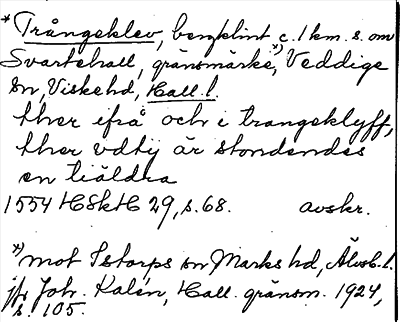 *Trångeklev, bergklint c. 1 km. s. om
Svartehall, gränsmärke,*) Veddige
sn, Viske hd, Hall. l.
ther ifrå och i trangeklyff,
ther vdtij är stondendes
en tiäldra
1554 HSkH 29, s. 68. avskr.
*) mot Istorps sn Marks hd, Älvsb. l.
jfr Joh. Kalén, Hall. gränsm. 1924,
s. 105.